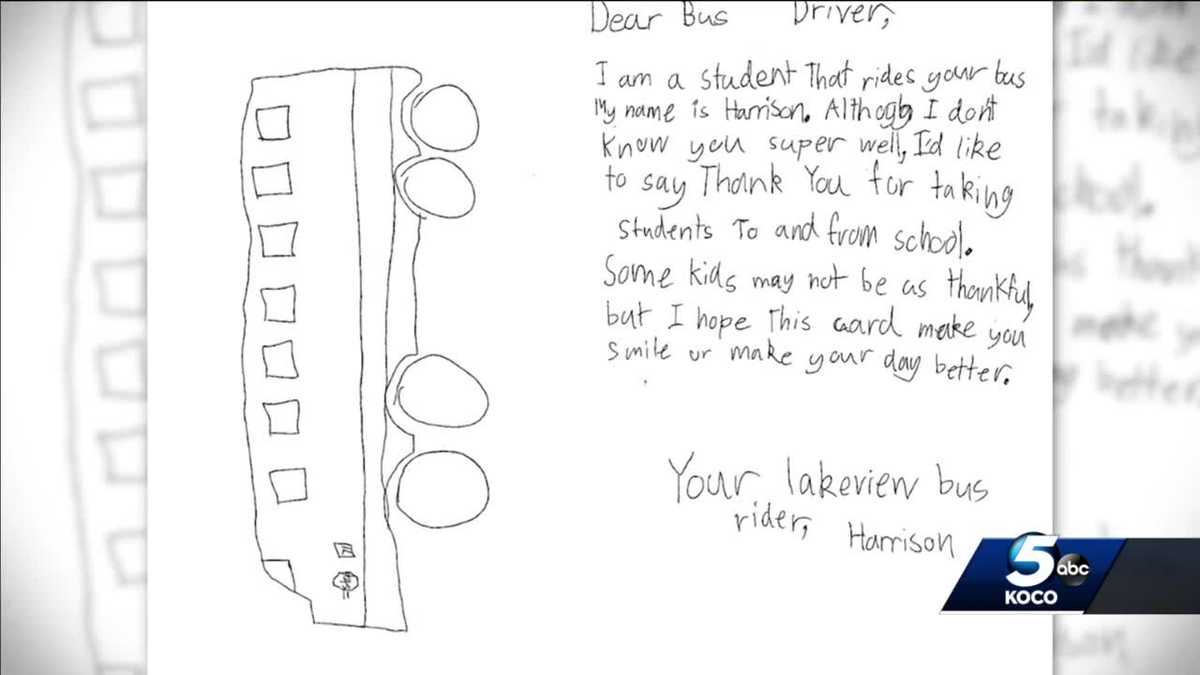 Dear Bus Driver,
I am a student That rides your bus
My name is Harrison. Althogh I don't
know you super well, I'd like
to say Thank You for taking
students To and from school.
Some kids may not be as thankful,
but I hope This card make you
smile or make your day better.
Your lakeview bus
rider,
Harrison
5 abc
KOCO